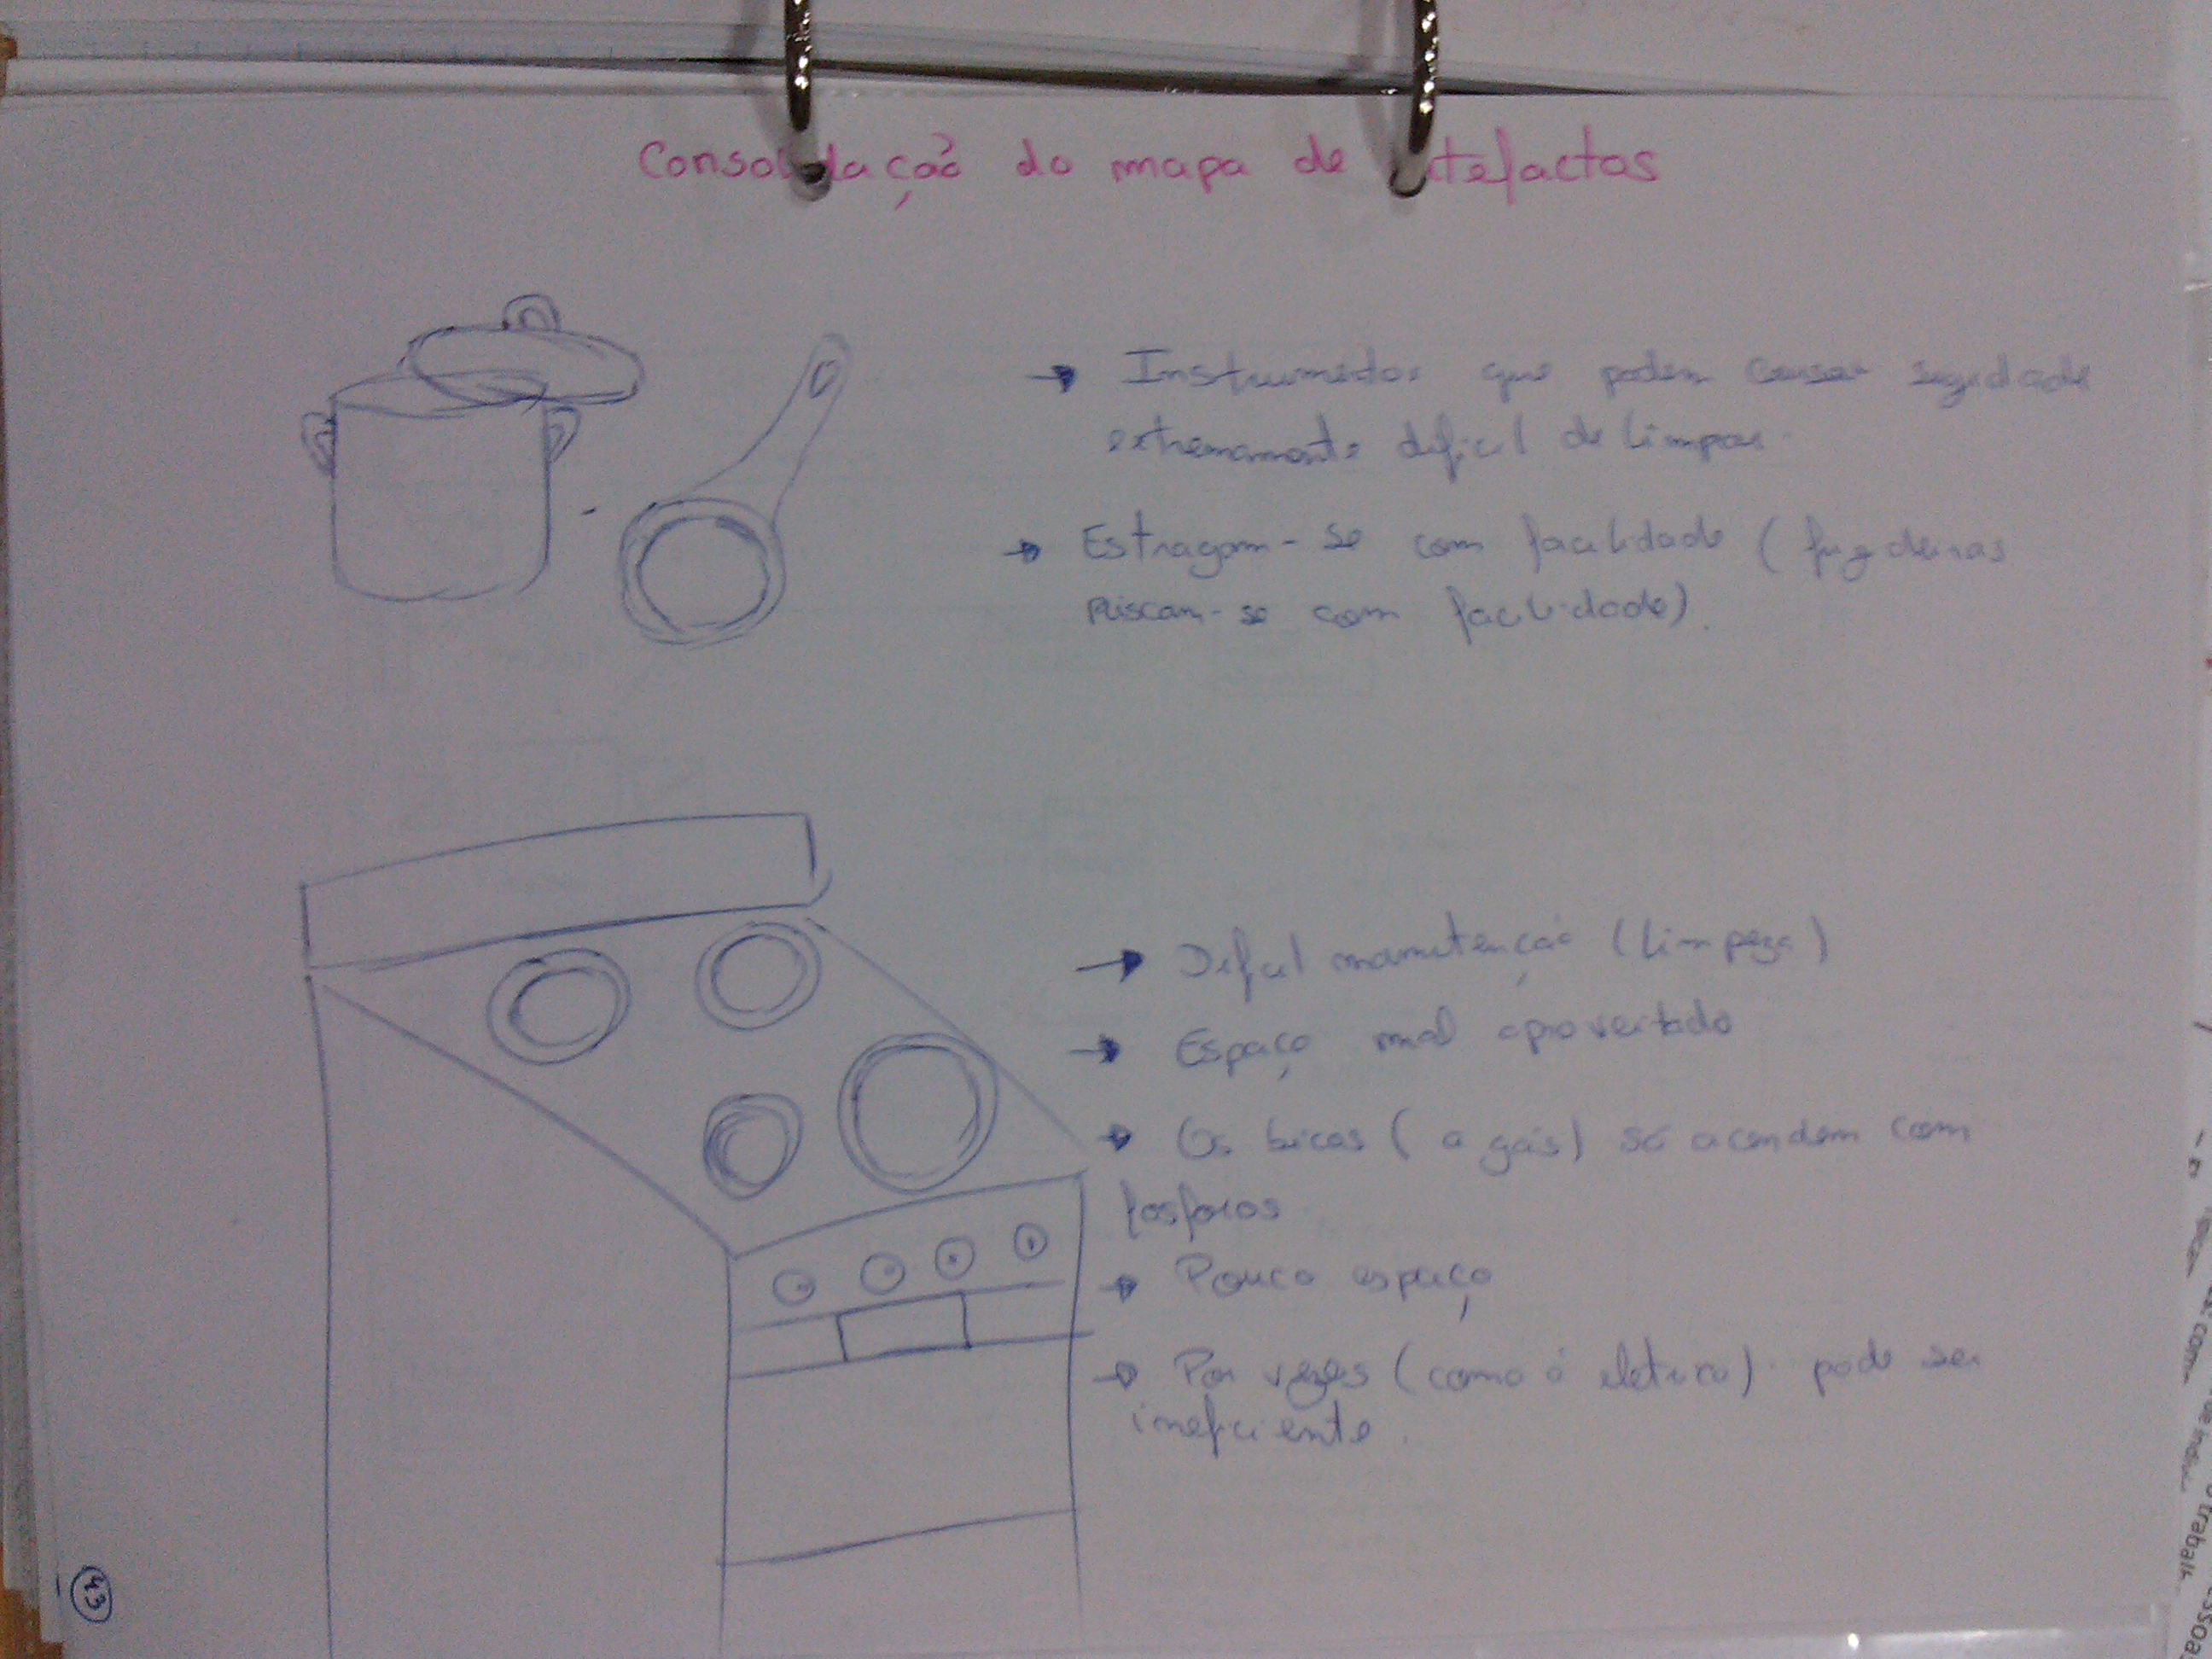 Consolidação do mapa de artefactos
→ Instrumentos que podem causar sugidade
extremamente dificil de limpar.
→ Estragam-se com facilidade (frigideiras
riscam-se com facilidade).
→ Dificil manutenção (limpeza)
→ Espaço mal aproveitado
→ Os bicos (a gás) só acendem com
fosforos
→ Pouco espaço
→ Por vezes (como o eletrico) pode ser
ineficiente.
43